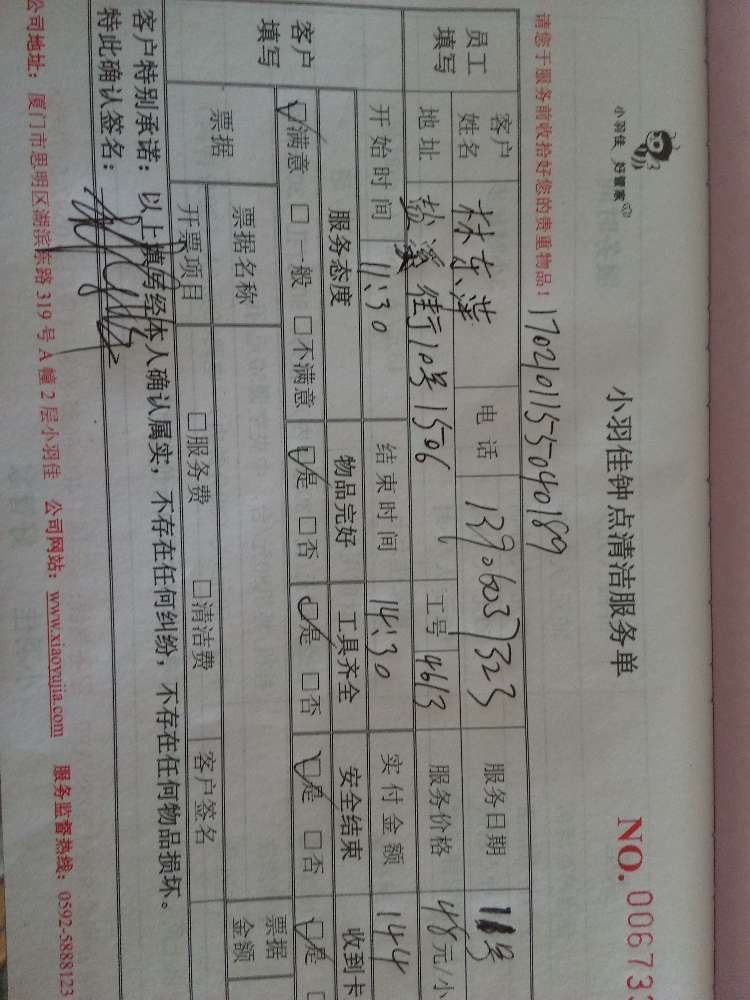 小羽佳 好管家
小羽佳钟点清洁服务单
NO. 00673
请您于服务前收拾好您的贵重物品！ 17021011555040189
员工填写
客户姓名 林东萍 电话 13960537323 服务日期 11号
地址 盐溪街10号1506 工号 4613 服务价格 48元/小
开始时间 11:30 结束时间 14:30 实付金额 144
客户填写
服务态度 物品完好 工具齐全 安全结束 收到卡
☑满意 □一般 □不满意 ☑是 □否 ☑是 □否 ☑是 □否 ☑是
票据 票据名称 票据金额
开票项目 □服务费 □清洁费 客户签名
客户特别承诺：以上填写经本人确认属实，不存在任何纠纷，不存在任何物品损坏。
特此确认签名：
公司地址：厦门市思明区湖滨东路 319 号 A 幢 2 层小羽佳 公司网站：www.xiaoyujia.com 服务监督热线：0592-5888123